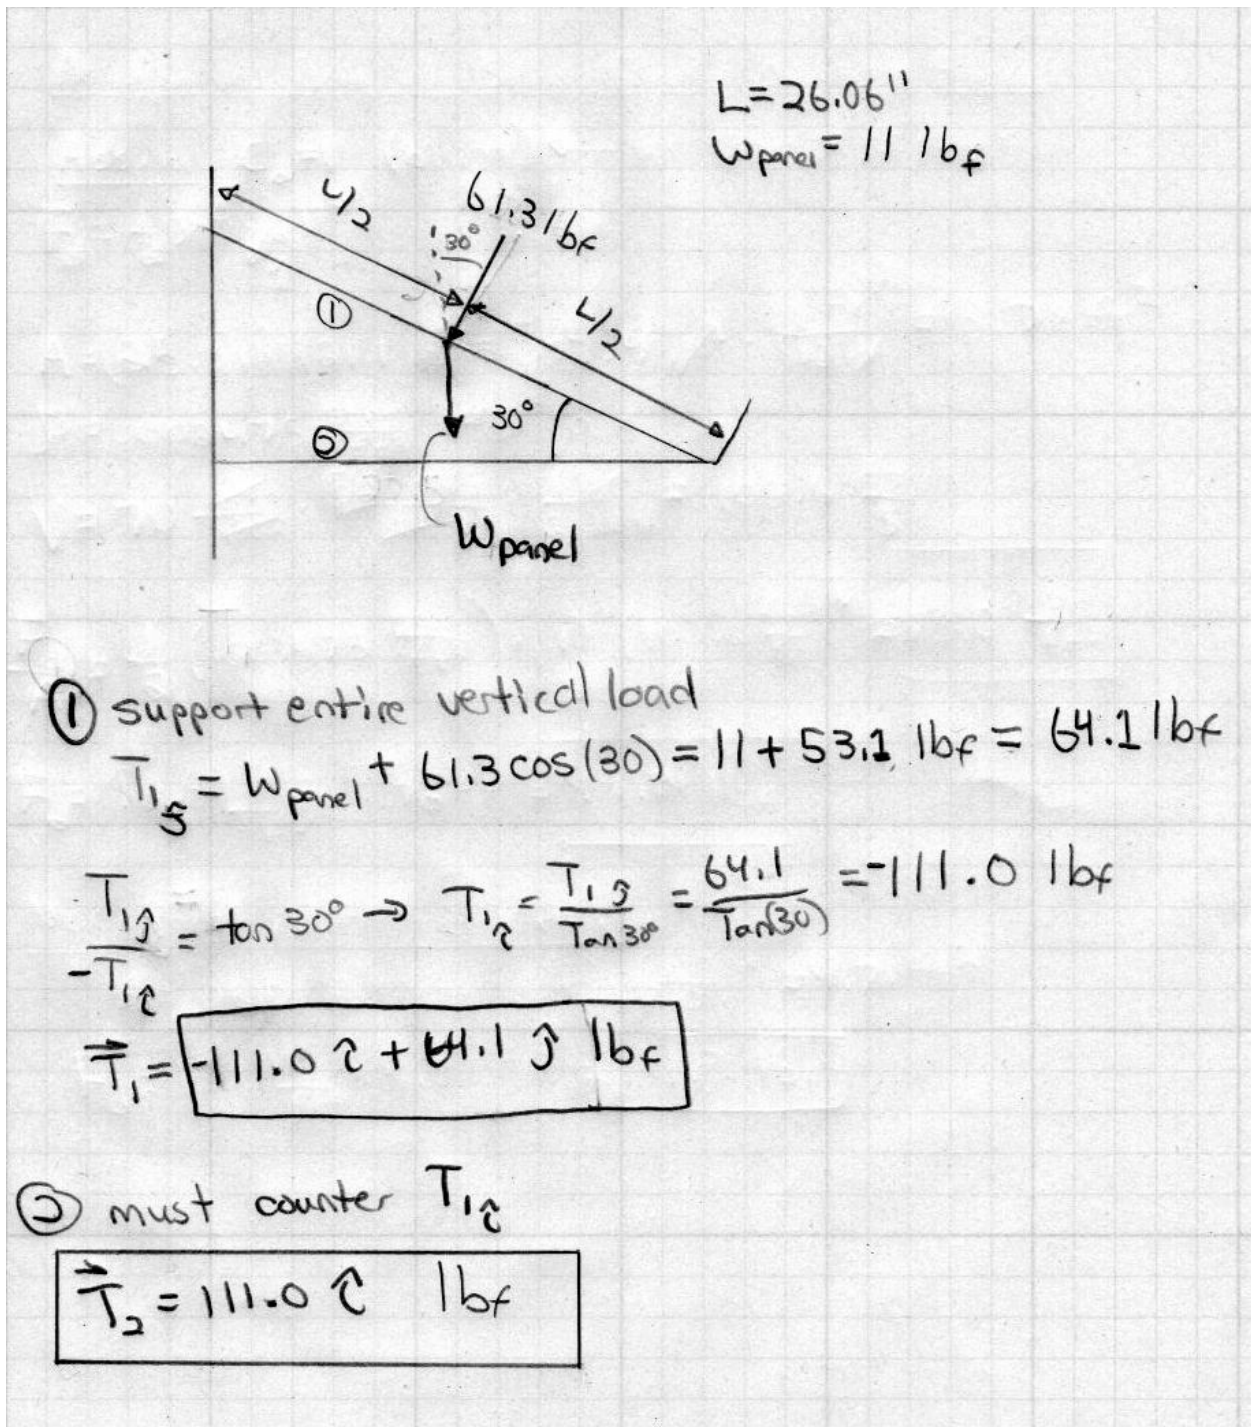 L=26.06"
Wpanel = 11 lbf
L/2
61.3 lbf
30°
①
L/2
30°
②
Wpanel
① support entire vertical load
T₁ĵ = Wpanel + 61.3 cos(30) = 11 + 53.1 lbf = 64.1 lbf
T₁ĵ / -T₁î = tan 30° → T₁î = T₁ĵ / Tan 30° = 64.1 / Tan(30) = -111.0 lbf
T⃗₁ = -111.0 î + 64.1 ĵ lbf
② must counter T₁î
T⃗₂ = 111.0 î lbf